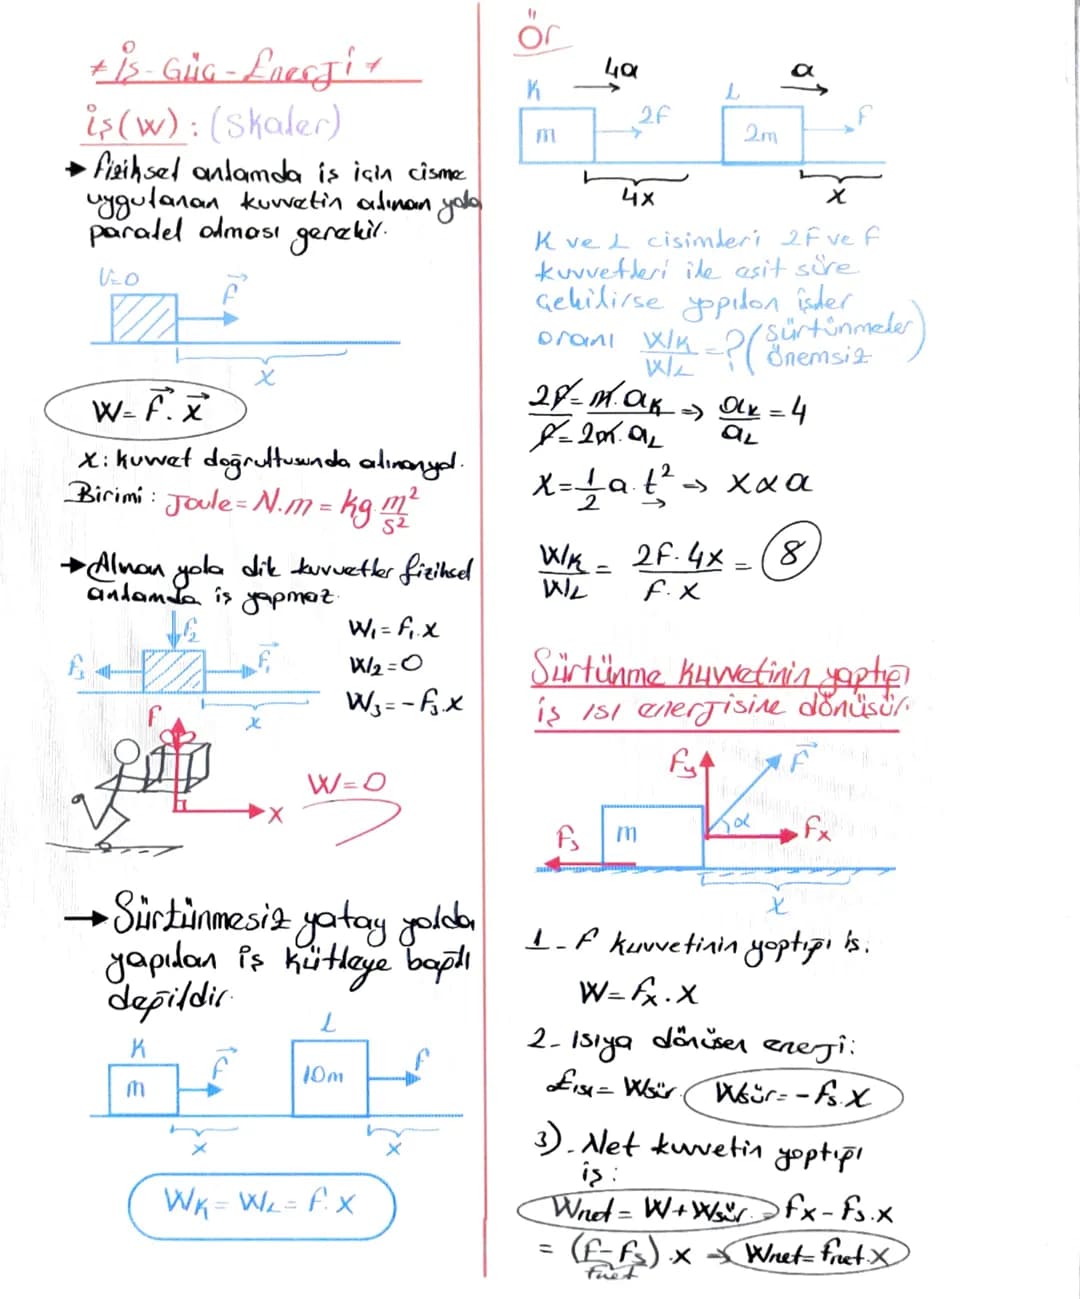 * İş - Güç - Enerji *
iş(W) : (Skaler)
→ fiziksel anlamda iş için cisme
uygulanan kuvvetin alınan yola
paralel olması gerekir.
V=0
F
x
W = F . x
x : kuvvet doğrultusunda alınan yol.
Birimi : Joule = N.m = kg . m²/s²
→ Alınan yola dik kuvvetler fiziksel
anlamda iş yapmaz.
f₂
f₃
F₁
x
W₁ = f₁ . x
W₂ = 0
W₃ = - f₃ . x
F
x
W = 0
→ Sürtünmesiz yatay yolda
yapılan iş kütleye bağlı
değildir.
K
m
F
x
L
10m
f
x
W_K = W_L = f . x
Ör
4a
K
m
2F
4x
a
L
2m
F
x
K ve L cisimleri 2F ve F
kuvvetleri ile eşit süre
çekilirse yapılan işler
oranı W_K/W_L = ? (sürtünmeler
önemsiz)
2F = m . a_K
F = 2m . a_L
⇒ a_K/a_L = 4
x = 1/2 a . t² ⇒ x α a
W_K/W_L = 2F . 4x / F . x = 8
Sürtünme kuvvetinin yaptığı
iş ısı enerjisine dönüşür.
Fy
F
α
m
Fs
Fx
x
1 - F kuvvetinin yaptığı iş:
W = fx . x
2 - Isıya dönüşen enerji:
Eısı = Wsür. Wsür = - fs . x
3). Net kuvvetin yaptığı
iş :
Wnet = W + Wsür. = fx - fs . x
= (f - fs) . x → Wnet = fnet . x
fnet